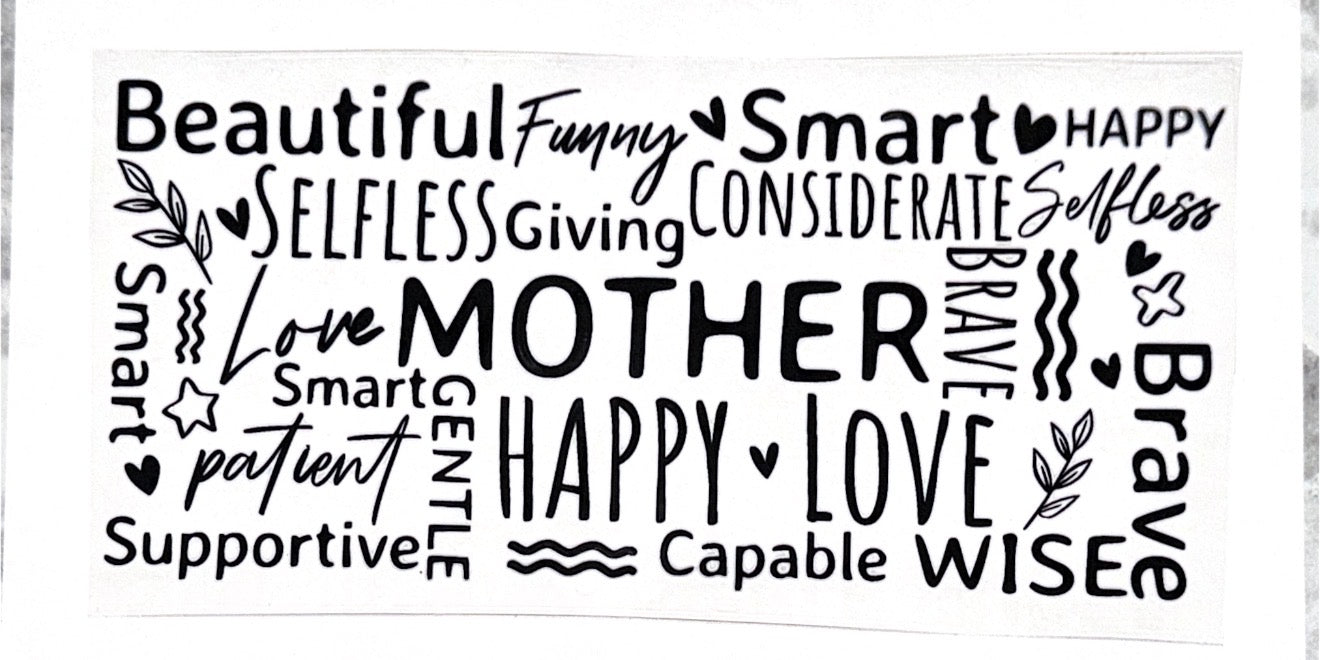 Beautiful Funny Smart HAPPY
SELFLESS Giving CONSIDERATE Selfless
Smart Love MOTHER BRAVE
Smart GENTLE
patient HAPPY LOVE Brave
Supportive Capable WISE